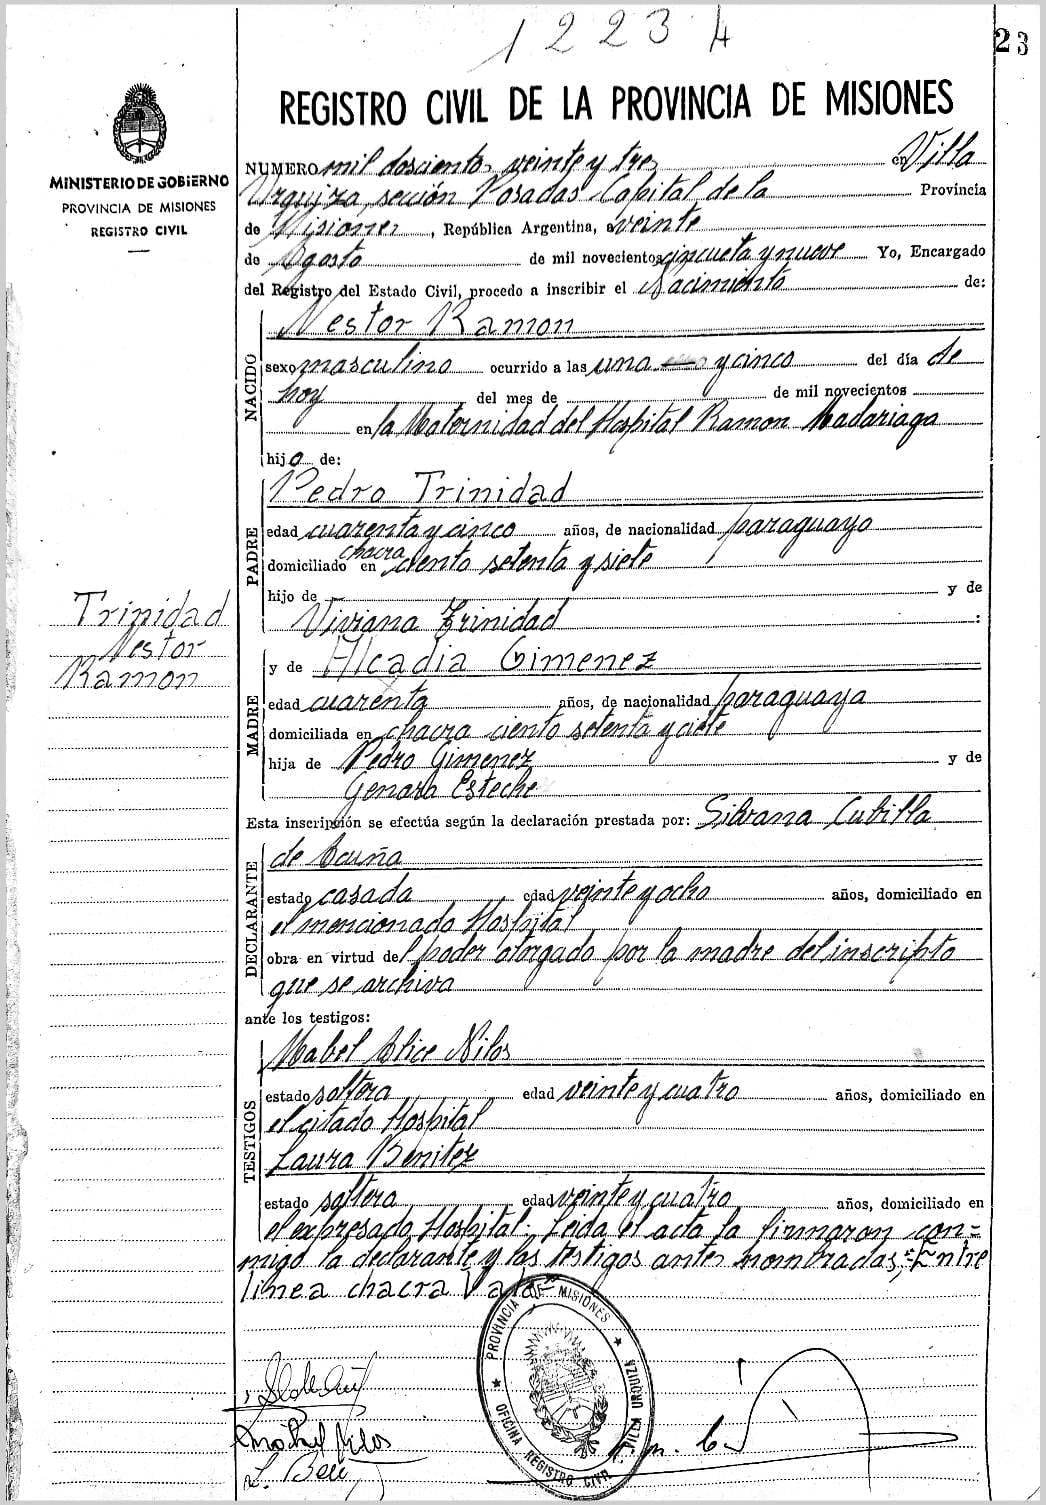 1223
23
REGISTRO CIVIL DE LA PROVINCIA DE MISIONES
MINISTERIO DE GOBIERNO
PROVINCIA DE MISIONES
REGISTRO CIVIL
NUMERO mil dosciento veinte y tres en Villa
Urquiza, sección Posadas Capital de la Provincia
de Misiones, República Argentina, a veinte
de Agosto de mil novecientos cincueta y nueve Yo, Encargado
del Registro del Estado Civil, procedo a inscribir el Nacimiento de:
NACIDO
Nestor Ramon
sexo masculino ocurrido a las una y cinco del día de
hoy del mes de de mil novecientos
en la Maternidad del Hospital Ramon Madariaga
hijo de:
PADRE
Pedro Trinidad
edad cuarenta y cinco años, de nacionalidad paraguayo
chacra
domiciliado en ciento setenta y siete
hijo de y de
Viviana Trinidad :
Trinidad
Nestor
Ramon
MADRE
y de Alcadia Gimenez
edad cuarenta años, de nacionalidad paraguaya
domiciliada en chacra ciento setenta y ciete
hija de Pedro Gimenez y de
Genara Esteche
Esta inscripción se efectúa según la declaración prestada por: Silvana Cubilla
DECLARANTE
de Acuña
estado casada edad veinte y ocho años, domiciliado en
el mencionado Hospital
obra en virtud del poder otorgado por la madre del inscripto
que se archiva
ante los testigos:
TESTIGOS
Mabel Alice Nilos
estado soltera edad veinte y cuatro años, domiciliado en
el citado Hospital
Laura Benitez
estado soltera edad veinte y cuatro años, domiciliado en
el expresado Hospital. Leida el acta la firmaron con-
migo la declarante y los testigos antes nombradas; Entre
linea chacra Vale
PROVINCIA DE MISIONES
OFICINA REGISTRO CIVIL
VILLA URQUIZA
Mabel Nilos